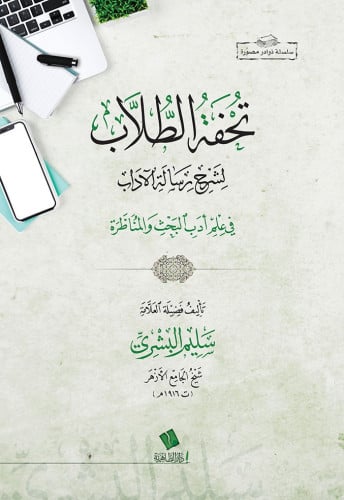 سلسلة نوادر مصورة
تُحْفَةُ الطُّلَّاب
لِشَرْحِ رِسَالَةِ الْآدَابِ
فِي عِلْمِ أَدَبِ الْبَحْثِ وَالْمُنَاظَرَةِ
تَأْلِيفُ فَضِيلَةِ الْعَلَّامَةِ
سَلِيمِ الْبِشْرِيِّ
شَيْخُ الْجَامِعِ الْأَزْهَرِ
(ت ١٩١٦م)
دار الظاهرية